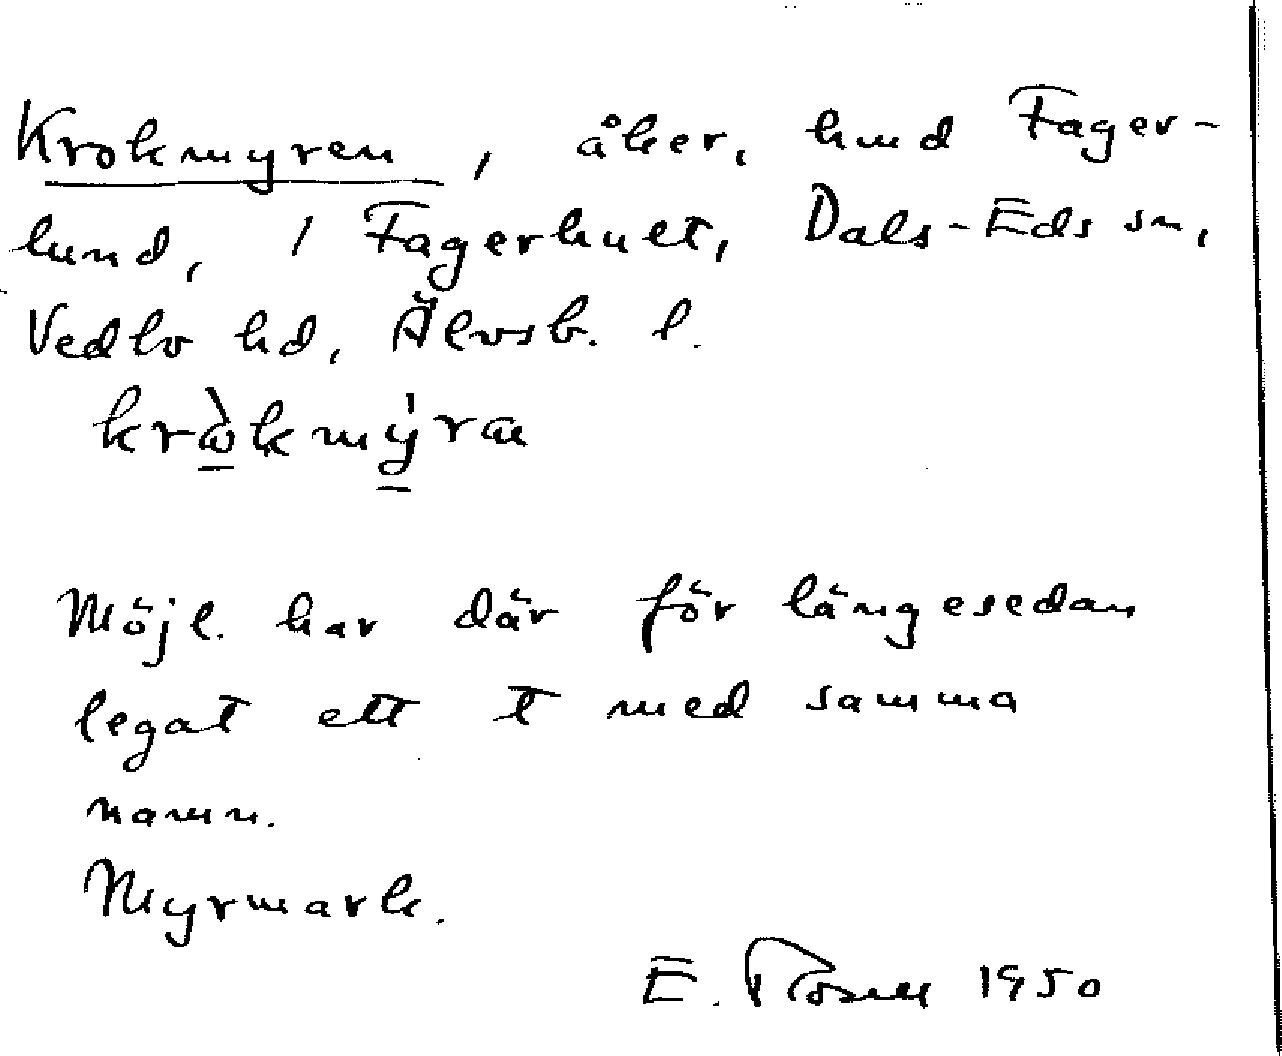 Krokmyren, åker, hmd Fager-
lund, / Fagerhult, Dals-Eds sn,
Vedbo hd, Älvsb. l.
kròkmýra
Möjl. har där för längesedan
legat ett t med samma
namn.
Myrmark.
E. Rosell 1950